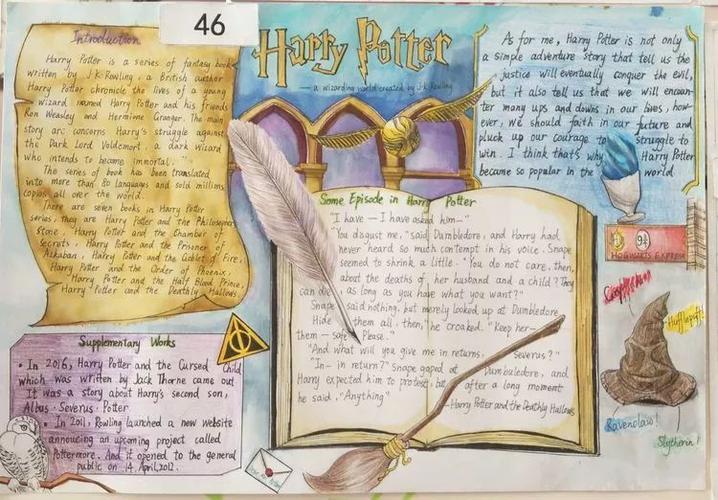 46
Harry Potter
— a wizarding world created by J.K. Rowling
Introduction
Harry Potter is a series of fantasy book
written by J.K.Rowling, a British author
Harry Potter chronicle the lives of a young
wizard named Harry Potter and his friends
Ron Weasley and Hermione Granger. The main
story arc concerns Harry's struggle against
the Dark Lord Voldemort, a dark wizard
who intends to become immortal.
The series of book has been translated
into more than 80 languages and sold millions
copies all over the world.
There are seven books in Harry Potter
series, they are Harry Potter and the Philosopher
Stone, Harry Potter and the Chamber of
Secrets, Harry Potter and the Prisoner of
Azkaban, Harry Potter and the Goblet of Fire,
Harry Potter and the Order of Phoenix,
Harry Potter and the Half Blood Prince,
Harry Potter and the Deathly Hallows
As for me, Harry Potter is not only
a simple adventure story that tell us the
justice will eventually conquer the evil,
but it also tell us that we will encoun-
ter many ups and downs in our lives, how-
ever, we should faith in our future and
pluck up our courage to struggle to
win. I think that's why Harry Potter
became so popular in the world
Some Episode in Harry Potter
"I have — I have asked him—"
"You disgust me," said Dumbledore, and Harry had
never heard so much contempt in his voice. Snape
seemed to shrink a little. "You do not care, then,
about the deaths of her husband and a child? They
can die as long as you have what you want?"
Snape said nothing, but merely looked up at Dumbledore.
Hide them all, then," he croaked. "Keep her—
them — safe. Please."
"And what will you give me in returns, Severus?"
"In— in return?" Snape gaped at Dumbledore, and
Harry expected him to protest, but after a long moment
he said, "Anything"
—Harry Potter and the Deathly Hallows
9¾
HOGWARTS EXPRESS
Gryffindor
Hufflepuff!
Ravenclaw!
Slytherin!
Supplementary Works
• In 2016, Harry Potter and the Cursed Child
which was written by Jack Thorne came out
It was a story about Harry's second son,
Albus · Severus · Potter
• In 2011, Rowling launched a new website
announcing an upcoming project called
Pottermore. And it opened to the general
public on 14 April, 2012.